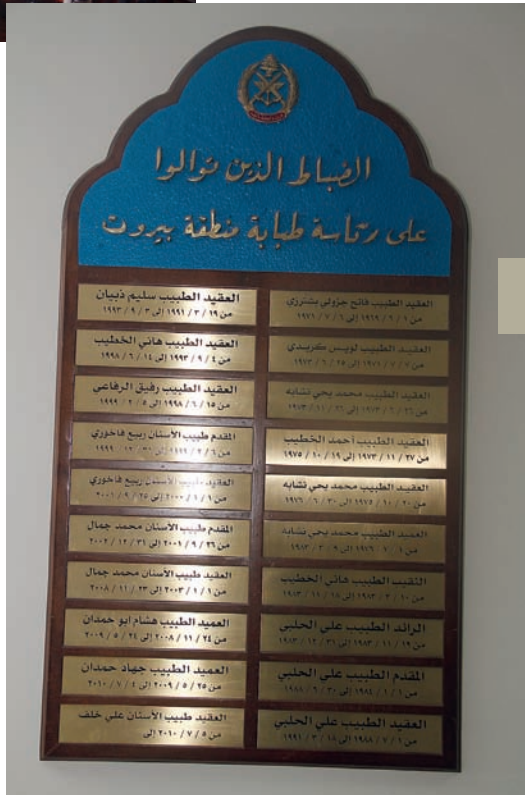 الضباط الذين توالوا
على رئاسة طبابة منطقة بيروت
العقيد الطبيب فاتح جزولي بشنزري
من ١ / ٩ / ١٩٦٩ إلى ٦ / ٧ / ١٩٧١
العقيد الطبيب لويس كريدي
من ٧ / ٧ / ١٩٧١ إلى ٢٥ / ٦ / ١٩٧٣
العقيد الطبيب محمد يحي نشابه
من ٢٦ / ٦ / ١٩٧٣ إلى ٢٦ / ١١ / ١٩٧٣
العقيد الطبيب أحمد الخطيب
من ٢٧ / ١١ / ١٩٧٣ إلى ١٩ / ١٠ / ١٩٧٥
العقيد الطبيب محمد يحي نشابه
من ٢٠ / ١٠ / ١٩٧٥ إلى ٣٠ / ٦ / ١٩٧٦
العميد الطبيب محمد يحي نشابه
من ١ / ٧ / ١٩٧٦ إلى ٩ / ٢ / ١٩٨٣
النقيب الطبيب هاني الخطيب
من ١٠ / ٢ / ١٩٨٣ إلى ١٨ / ١١ / ١٩٨٣
الرائد الطبيب علي الحلبي
من ١٩ / ١١ / ١٩٨٣ إلى ٣١ / ١٢ / ١٩٨٣
المقدم الطبيب علي الحلبي
من ١ / ١ / ١٩٨٤ إلى ٣٠ / ٦ / ١٩٨٨
العقيد الطبيب علي الحلبي
من ١ / ٧ / ١٩٨٨ إلى ١٨ / ٣ / ١٩٩١
العقيد الطبيب سليم ذبيان
من ١٩ / ٣ / ١٩٩١ إلى ٣ / ٩ / ١٩٩٣
العقيد الطبيب هاني الخطيب
من ٤ / ٩ / ١٩٩٣ إلى ١٤ / ٦ / ١٩٩٨
العقيد الطبيب رفيق الرفاعي
من ١٥ / ٦ / ١٩٩٨ إلى ٥ / ٢ / ١٩٩٩
المقدم طبيب الأسنان ربيع فاخوري
من ٦ / ٢ / ١٩٩٩ إلى ٣١ / ١٢ / ١٩٩٩
العقيد طبيب الأسنان ربيع فاخوري
من ١ / ١ / ٢٠٠٠ إلى ٢٥ / ٩ / ٢٠٠١
المقدم طبيب الأسنان محمد جمال
من ٢٦ / ٩ / ٢٠٠١ إلى ٣١ / ١٢ / ٢٠٠٢
العقيد طبيب الأسنان محمد جمال
من ١ / ١ / ٢٠٠٣ إلى ٢٣ / ١١ / ٢٠٠٨
العميد الطبيب هشام ابو حمدان
من ٢٤ / ١١ / ٢٠٠٨ إلى ٢٤ / ٥ / ٢٠٠٩
العميد الطبيب جهاد حمدان
من ٢٥ / ٥ / ٢٠٠٩ إلى ٤ / ٧ / ٢٠١٠
العقيد طبيب الأسنان علي خلف
من ٥ / ٧ / ٢٠١٠ إلى